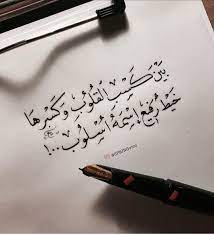 بَيْنَ كَسْبِ القُلُوْبِ وَكَسْرِهَا
خَيْطٌ رَفِيْعٌ اِسْمُهُ أُسْلُوب ..!